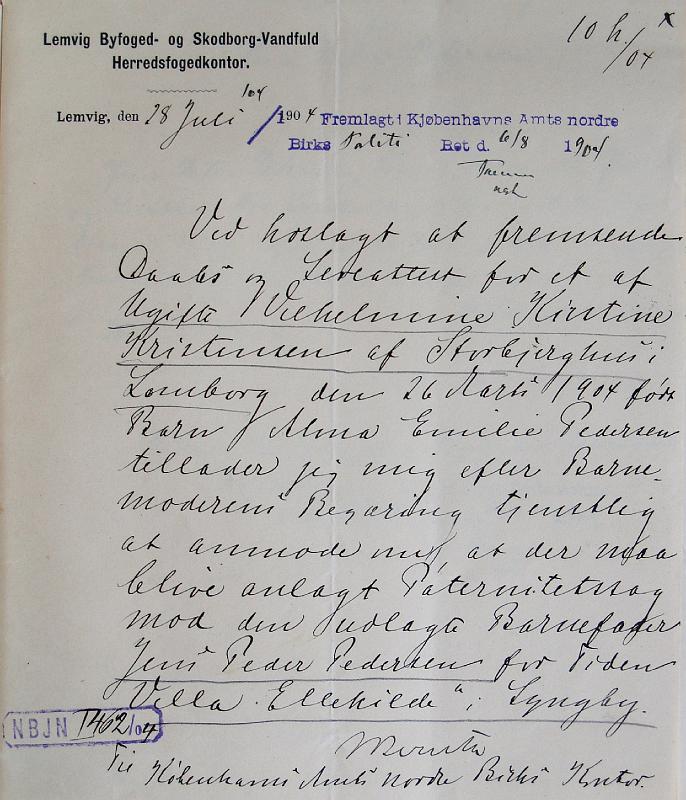 10 h. x
/04
Lemvig Byfoged- og Skodborg-Vandfuld
Herredsfogedkontor.
Lemvig, den 28 Juli /04 1904 Fremlagt i Kjøbenhavns Amts nordre
Birks Politi Ret d. 6/8 1904
Ved hoslagt at fremsende
Daabs og Leveattest for et af
Ugifte Vilhelmine Kirstine
Kristensen af Storbjerghus i
Lomborg den 26 Marts 1904 født
Barn Alma Emilie Pedersen
tillader jeg mig efter Barne-
moderens Begæring tjenstlig
at anmode om, at der maa
blive anlagt Paternitetssag
mod den udlagte Barnefader
Jens Peder Pedersen for Tiden
Villa "Ellekilde" i Lyngby.
NBJN 1462/04
Til Københavns Amts Nordre Birks Kontor.